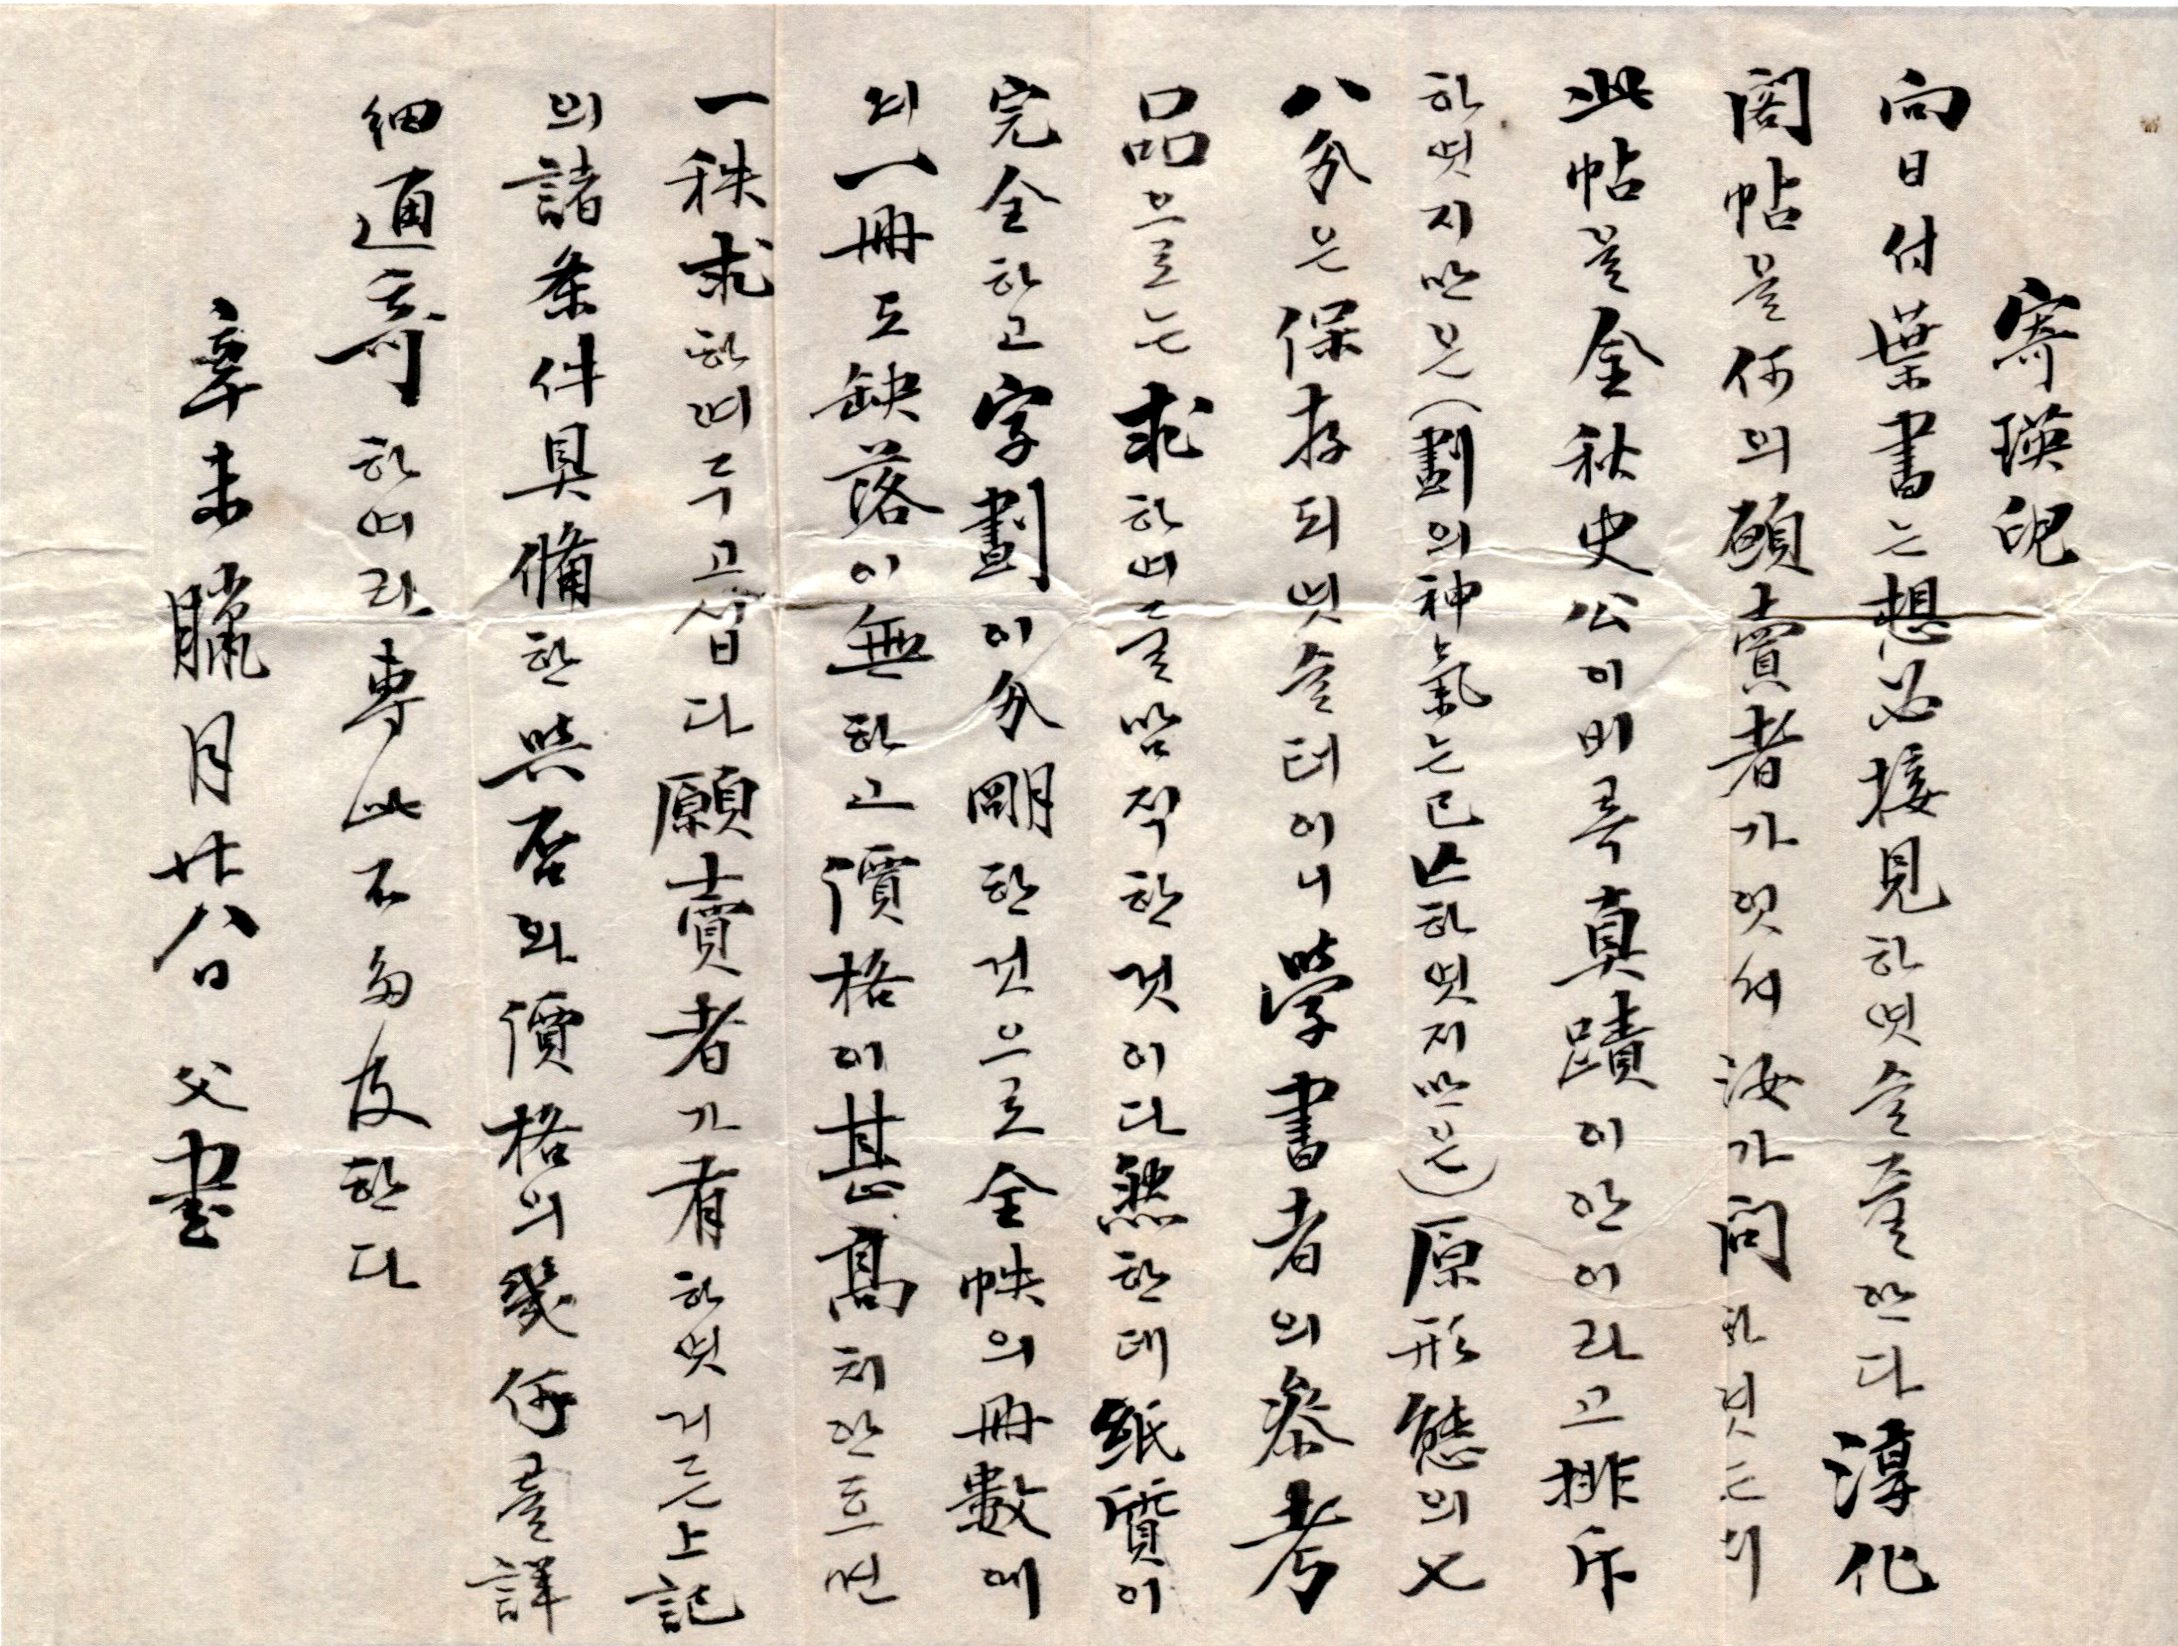 寄瑛兒
向日付葉書는想必接見하엿슬줄안다淳化
閣帖을何의願賣者가잇서汝가問하엿든지
此帖을金秋史公이비록眞蹟이안이라고排斥
하엿지만은(劃의神氣는已亡하엿지만은)原形態의七
八分은保存되엿슬터이니學書者의參考
品으로는求하여둘맘직한것이다然한데紙質이
完全하고字劃이分明한것으로全帙의冊數에
되一冊도缺落이無하고價格이甚高치안흐면
一秩求하여두고십다願賣者가有하엿거든上記
의諸条件具備한與否와價格의幾何를詳
細通奇하여라專此不多及한다
辛未臘月廿八日 父書